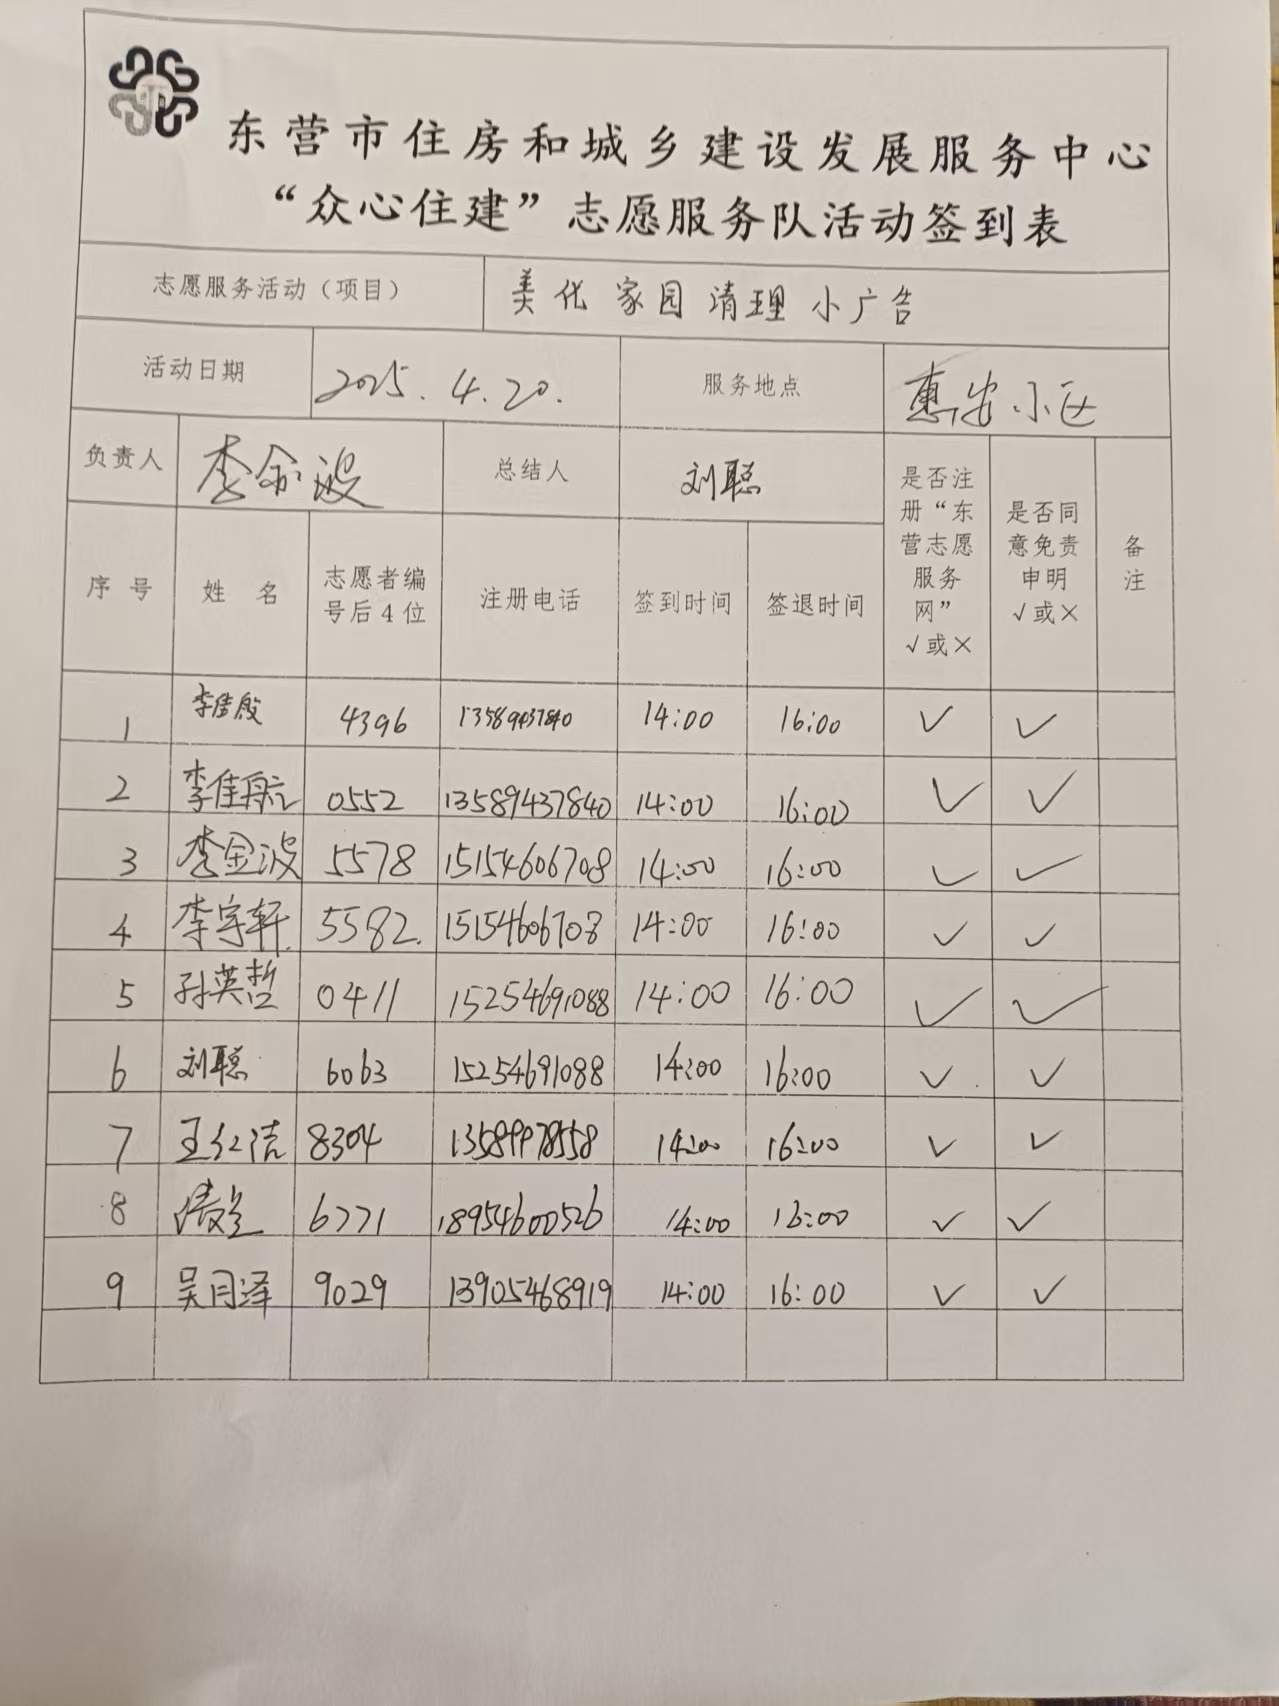 东营市住房和城乡建设发展服务中心
“众心住建”志愿服务队活动签到表
志愿服务活动（项目） 美化家园清理小广告
活动日期 2025.4.20. 服务地点 惠安小区
负责人 李金波 总结人 刘聪
序号 姓名 志愿者编号后4位 注册电话 签到时间 签退时间 是否注册“东营志愿服务网”√或× 是否同意免责申明√或× 备注
1 李佳殷 4396 13589437840 14:00 16:00 ✓ ✓
2 李佳航 0552 13589437840 14:00 16:00 ✓ ✓
3 李金波 5578 15154606708 14:00 16:00 ✓ ✓
4 李宇轩 5582. 15154606708 14:00 16:00 ✓ ✓
5 孙英哲 0411 15254691088 14:00 16:00 ✓ ✓
6 刘聪 6063 15254691088 14:00 16:00 ✓ ✓
7 王红洁 8304 13589978558 14:00 16:00 ✓ ✓
8 6771 18954600526 14:00 16:00 ✓ ✓
9 吴同泽 9029 13905468919 14:00 16:00 ✓ ✓